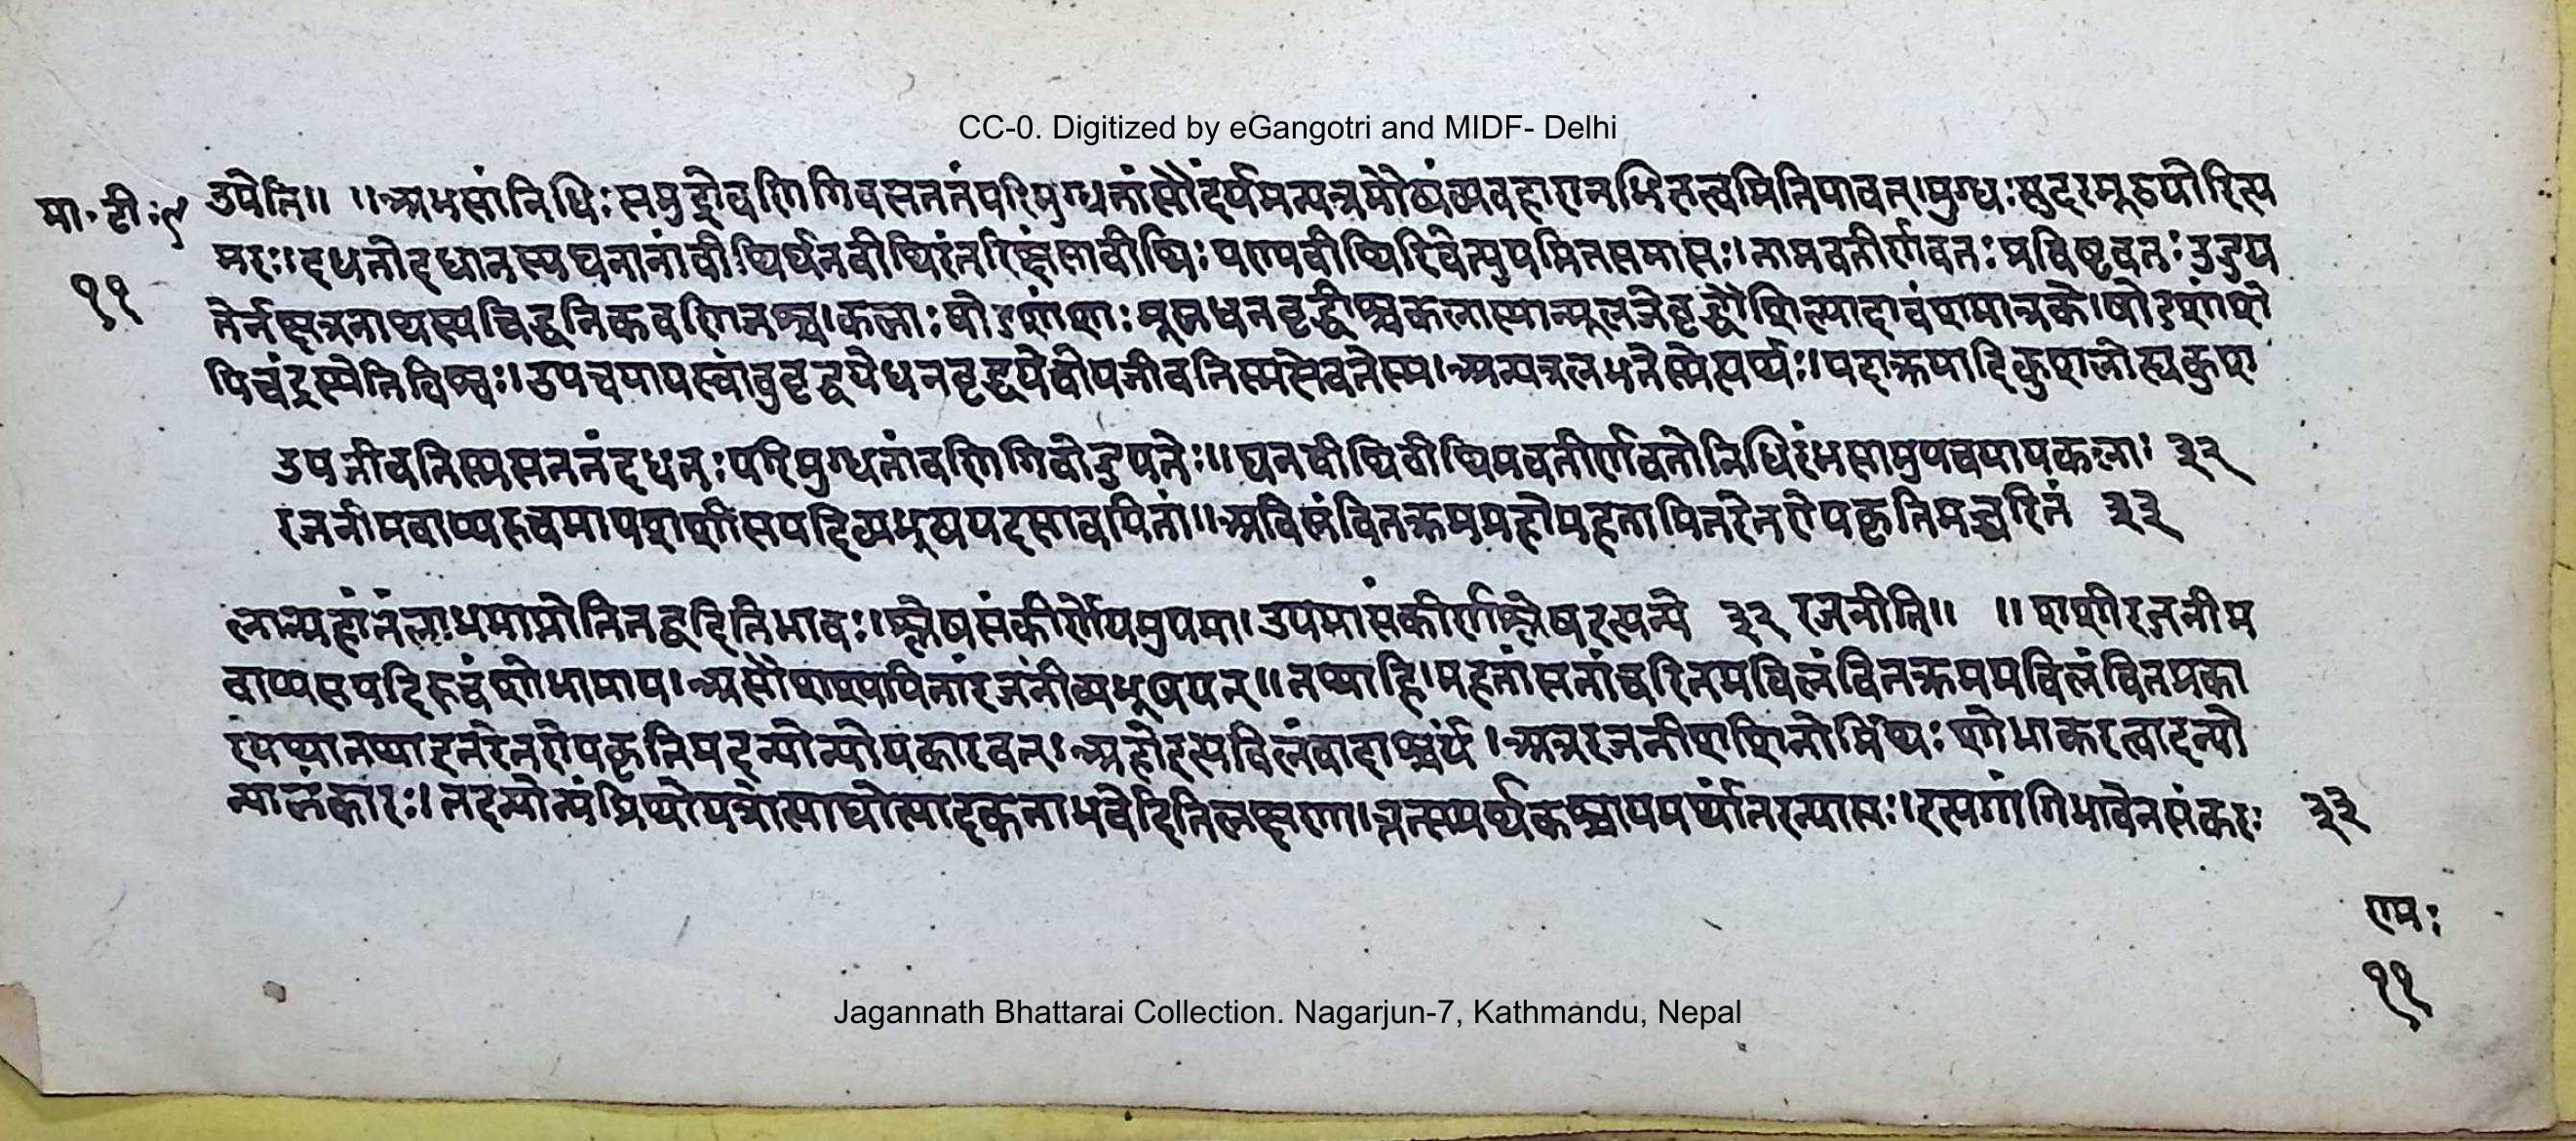 CC-0. Digitized by eGangotri and MIDF- Delhi
मा॰ टी॰ ९ उपेति॥ ॥अंभसांनिधिः समुद्रोवणिगिवसततंपरिमुग्धतांसौंदर्यमन्यत्रमौढ्यंव्यवहारानभिज्ञत्वमितियावत्।मुग्धः सुंदरमूढयोरित्य
११ मरः।दधतोदधानस्यघनानांवीथिर्घनवीथिरंतरिक्षंसावीथिः पण्यवीथिरिवेत्युपमितसमासः।तामवतीर्णवतः प्रविष्टवतः उडुप
तेर्नक्षत्रनाथस्यचिद्धनिकवणिजश्च।कलाः षोडशांशाः मूलधनवृद्धीश्चकलास्यान्मूलजेवृद्धौशिल्पादावंशमात्रके।षोडशांशे
पिचंद्रस्येतिविश्वः।उपचयायस्वांबुवृद्धयेधनवृद्धयेचोपजीवतिस्मसेवतेस्म।अन्यत्रलभतेस्मेत्यर्थः।यदाक्रयादिकुशलोह्यकुश
उपजीवतिस्मसततंदधतः परिमुग्धतांवणिगिवोडुपतेः॥घनवीथिवीथिमवतीर्णवतोनिधिरंभसामुपचयायकलाः ३२
रजनीमवाप्यरुचमापशशीसपदिव्यभूषयदसावपितां॥अविलंवितक्रममहोमहतामितरेतरोपकृतिमच्चरितं ३३
लान्महांतंलाभमाप्नोतितद्वदितिभावः।श्लेषसंकीर्णेयमुपमा।उपमासंकीर्णश्लेषइत्यन्ये ३२ रजनीति॥ ॥शशीरजनीम
वाप्यसपदिरुचंशोभामाप।असौशश्यपितांरजनींव्यभूषयत्॥तथाहि।महतांसतांचरितमविलंवितक्रममविलंवितप्रका
रंयथातथाइतरेतरोपकृतिमदन्योन्योपकारवत्।अहोइत्यविलंवादाश्चर्यं।अत्ररजनीशशिनोर्मिथः शोभाकरत्वादन्यो
न्यालंकारः।तदन्योन्यंमिथोयत्रोत्पाद्योत्पादकताभवेदितिलक्षणात्।तत्समर्थकश्चायमर्थांतरन्यासः।इत्यंगांगिभावेनसंकरः ३३
रामः
११
Jagannath Bhattarai Collection. Nagarjun-7, Kathmandu, Nepal